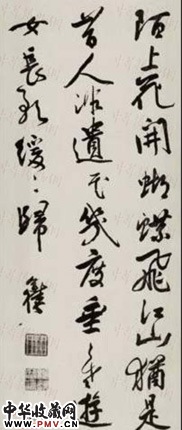 陌上花開蝴蝶飛江山猶是
昔人非遺民幾度垂〻老遊
女長歌緩〻歸
中华收藏网
WWW.PMV.CN